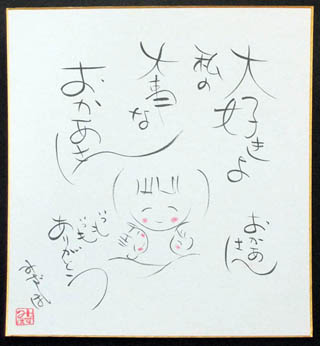 大好きよ
私の
大事な
おかあさん
おかあ
さん
いつも
いつも
ありがとう